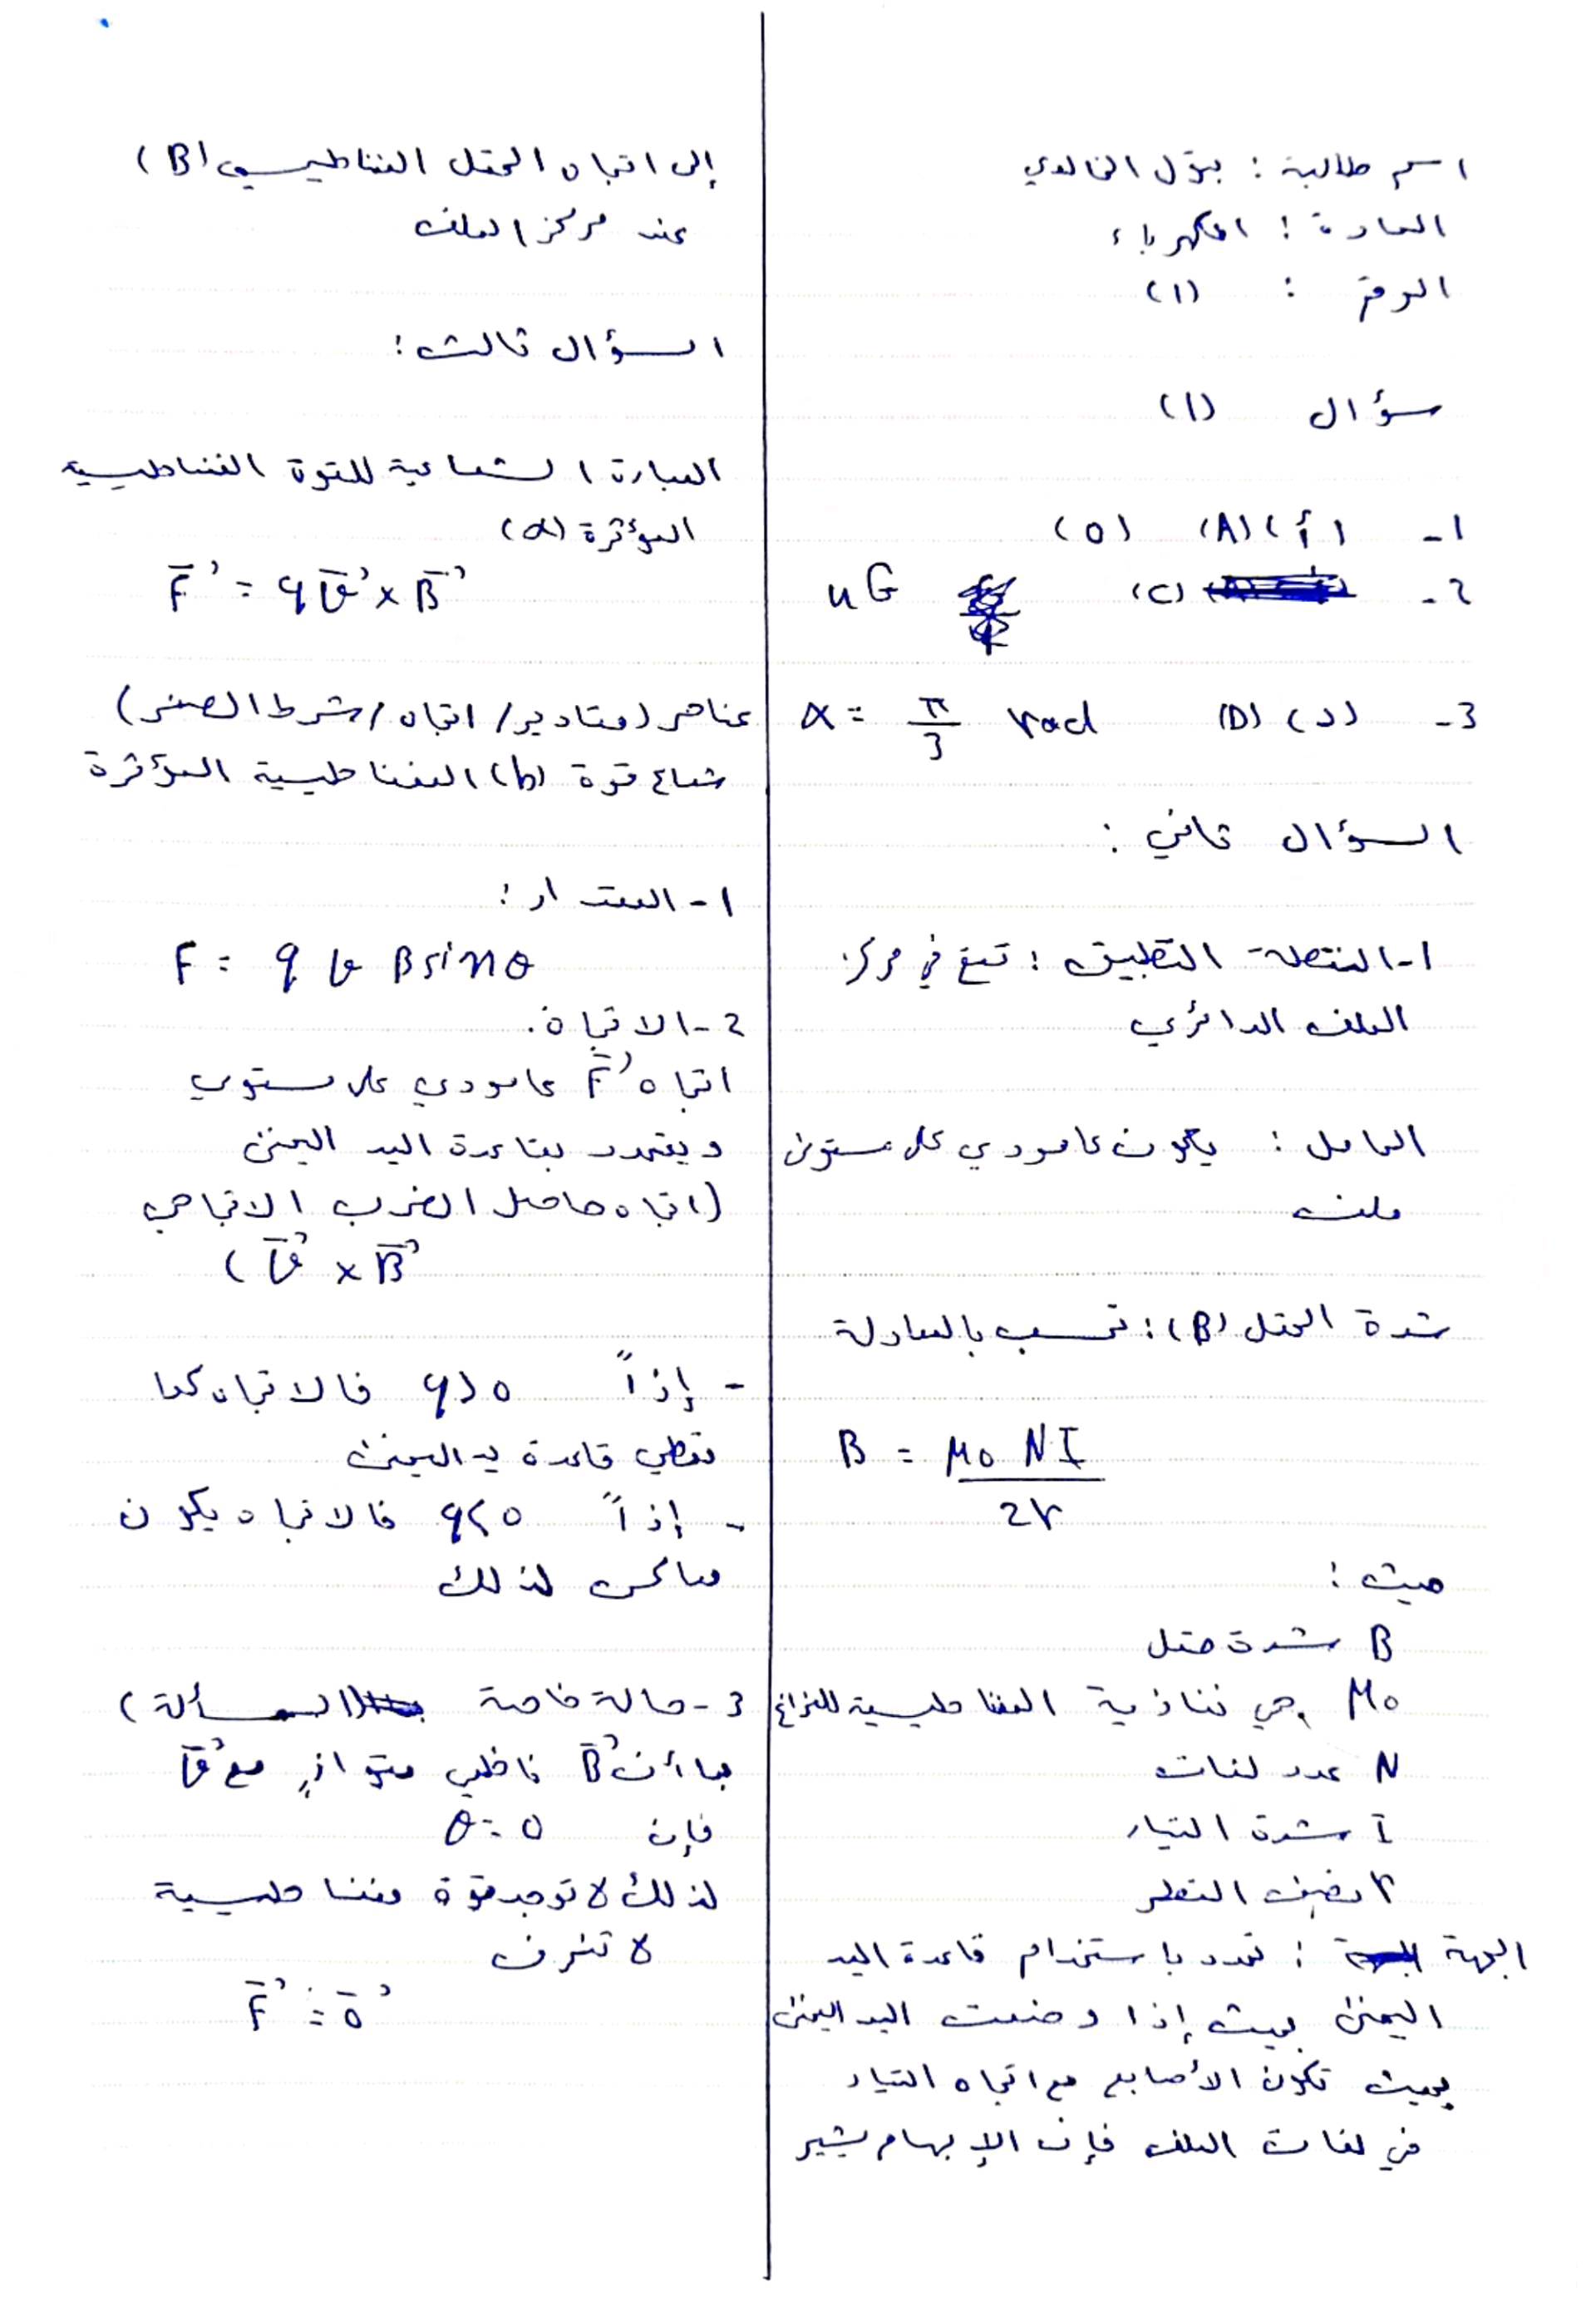 اسم طالبة : بتول الخالدي
المادة : الكهرباء
الرقم : (1)
سؤال (1)
1- (أ) (A) (0)
2- (C) uG
3- (د) (D) α = π/3 rad
السؤال ثاني :
1- النقطة التطبيق : تقع في مركز
الملف الدائري
الحامل : يكون عامودي على مستوى
ملف
شدة الحقل (B) : تحسب بالمعادلة
B = μ0 NI / 2r
حيث :
B شدة حقل
μ0 هي نفاذية المغناطيسية للفراغ
N عدد لفات
I شدة التيار
r نصف القطر
الجهة : تحدد باستخدام قاعدة اليد
اليمنى بحيث إذا وضعت اليد اليمنى
بحيث تكون الأصابع مع اتجاه التيار
في لفات الملف فإن الإبهام يشير
إلى اتجاه الحقل المغناطيسي (B)
عند مركز الملف
السؤال ثالث :
العبارة الشعاعية للقوة المغناطيسية
المؤثرة (a)
F⃗ = q v⃗ × B⃗
عناصر (مقادير / اتجاه / شرط الصفر)
شعاع قوة (b) المغناطيسية المؤثرة
1- المقدار :
F = q v B sin θ
2- الاتجاه .
اتجاه F⃗ عامودي على مستوي
ويتحدد بقاعدة اليد اليمنى
(اتجاه حاصل الضرب الاتجاهي
v⃗ × B⃗)
- إذاً q>0 فالاتجاه كما
تعطي قاعدة يد اليمنى
- إذاً q<0 فالاتجاه يكون
معاكس لذلك
3- حالة خاصة (المسألة)
بما أن B⃗ ناظمي متوازٍ مع v⃗
فإن θ = 0
لذلك لا توجد قوة مغناطيسية
لا تنحرف
F⃗ = 0⃗